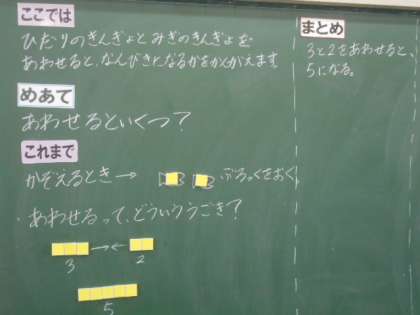 ここでは
ひだりのきんぎょとみぎのきんぎょを
あわせると、なんびきになるかをかんがえます
めあて
あわせるといくつ?
これまで
かぞえるとき→ ぶろっくをおく
・あわせるって、どういううごき?
→←
3 2
5
まとめ
3と2をあわせると、
5になる。